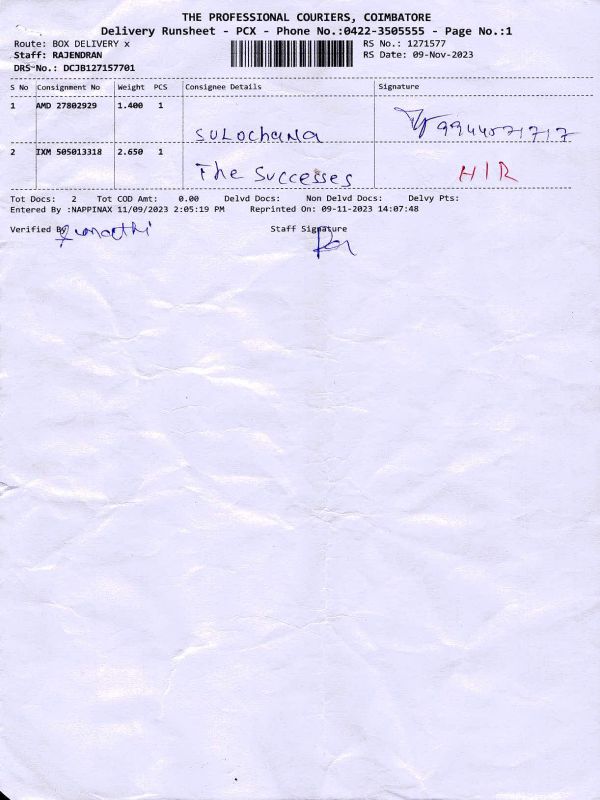 THE PROFESSIONAL COURIERS, COIMBATORE
Delivery Runsheet - PCX - Phone No.:0422-3505555 - Page No.:1
Route: BOX DELIVERY x RS No.: 1271577
Staff: RAJENDRAN RS Date: 09-Nov-2023
DRS No.: DCJB127157701
S No Consignment No Weight PCS Consignee Details Signature
1 AMD 27802929 1.400 1
SULOchaNa 9944071717
2 IXM 505013318 2.650 1
The Successes H/R
Tot Docs: 2 Tot COD Amt: 0.00 Delvd Docs: Non Delvd Docs: Delvy Pts:
Entered By :NAPPINAX 11/09/2023 2:05:19 PM Reprinted On: 09-11-2023 14:07:48
Verified By Staff Signature